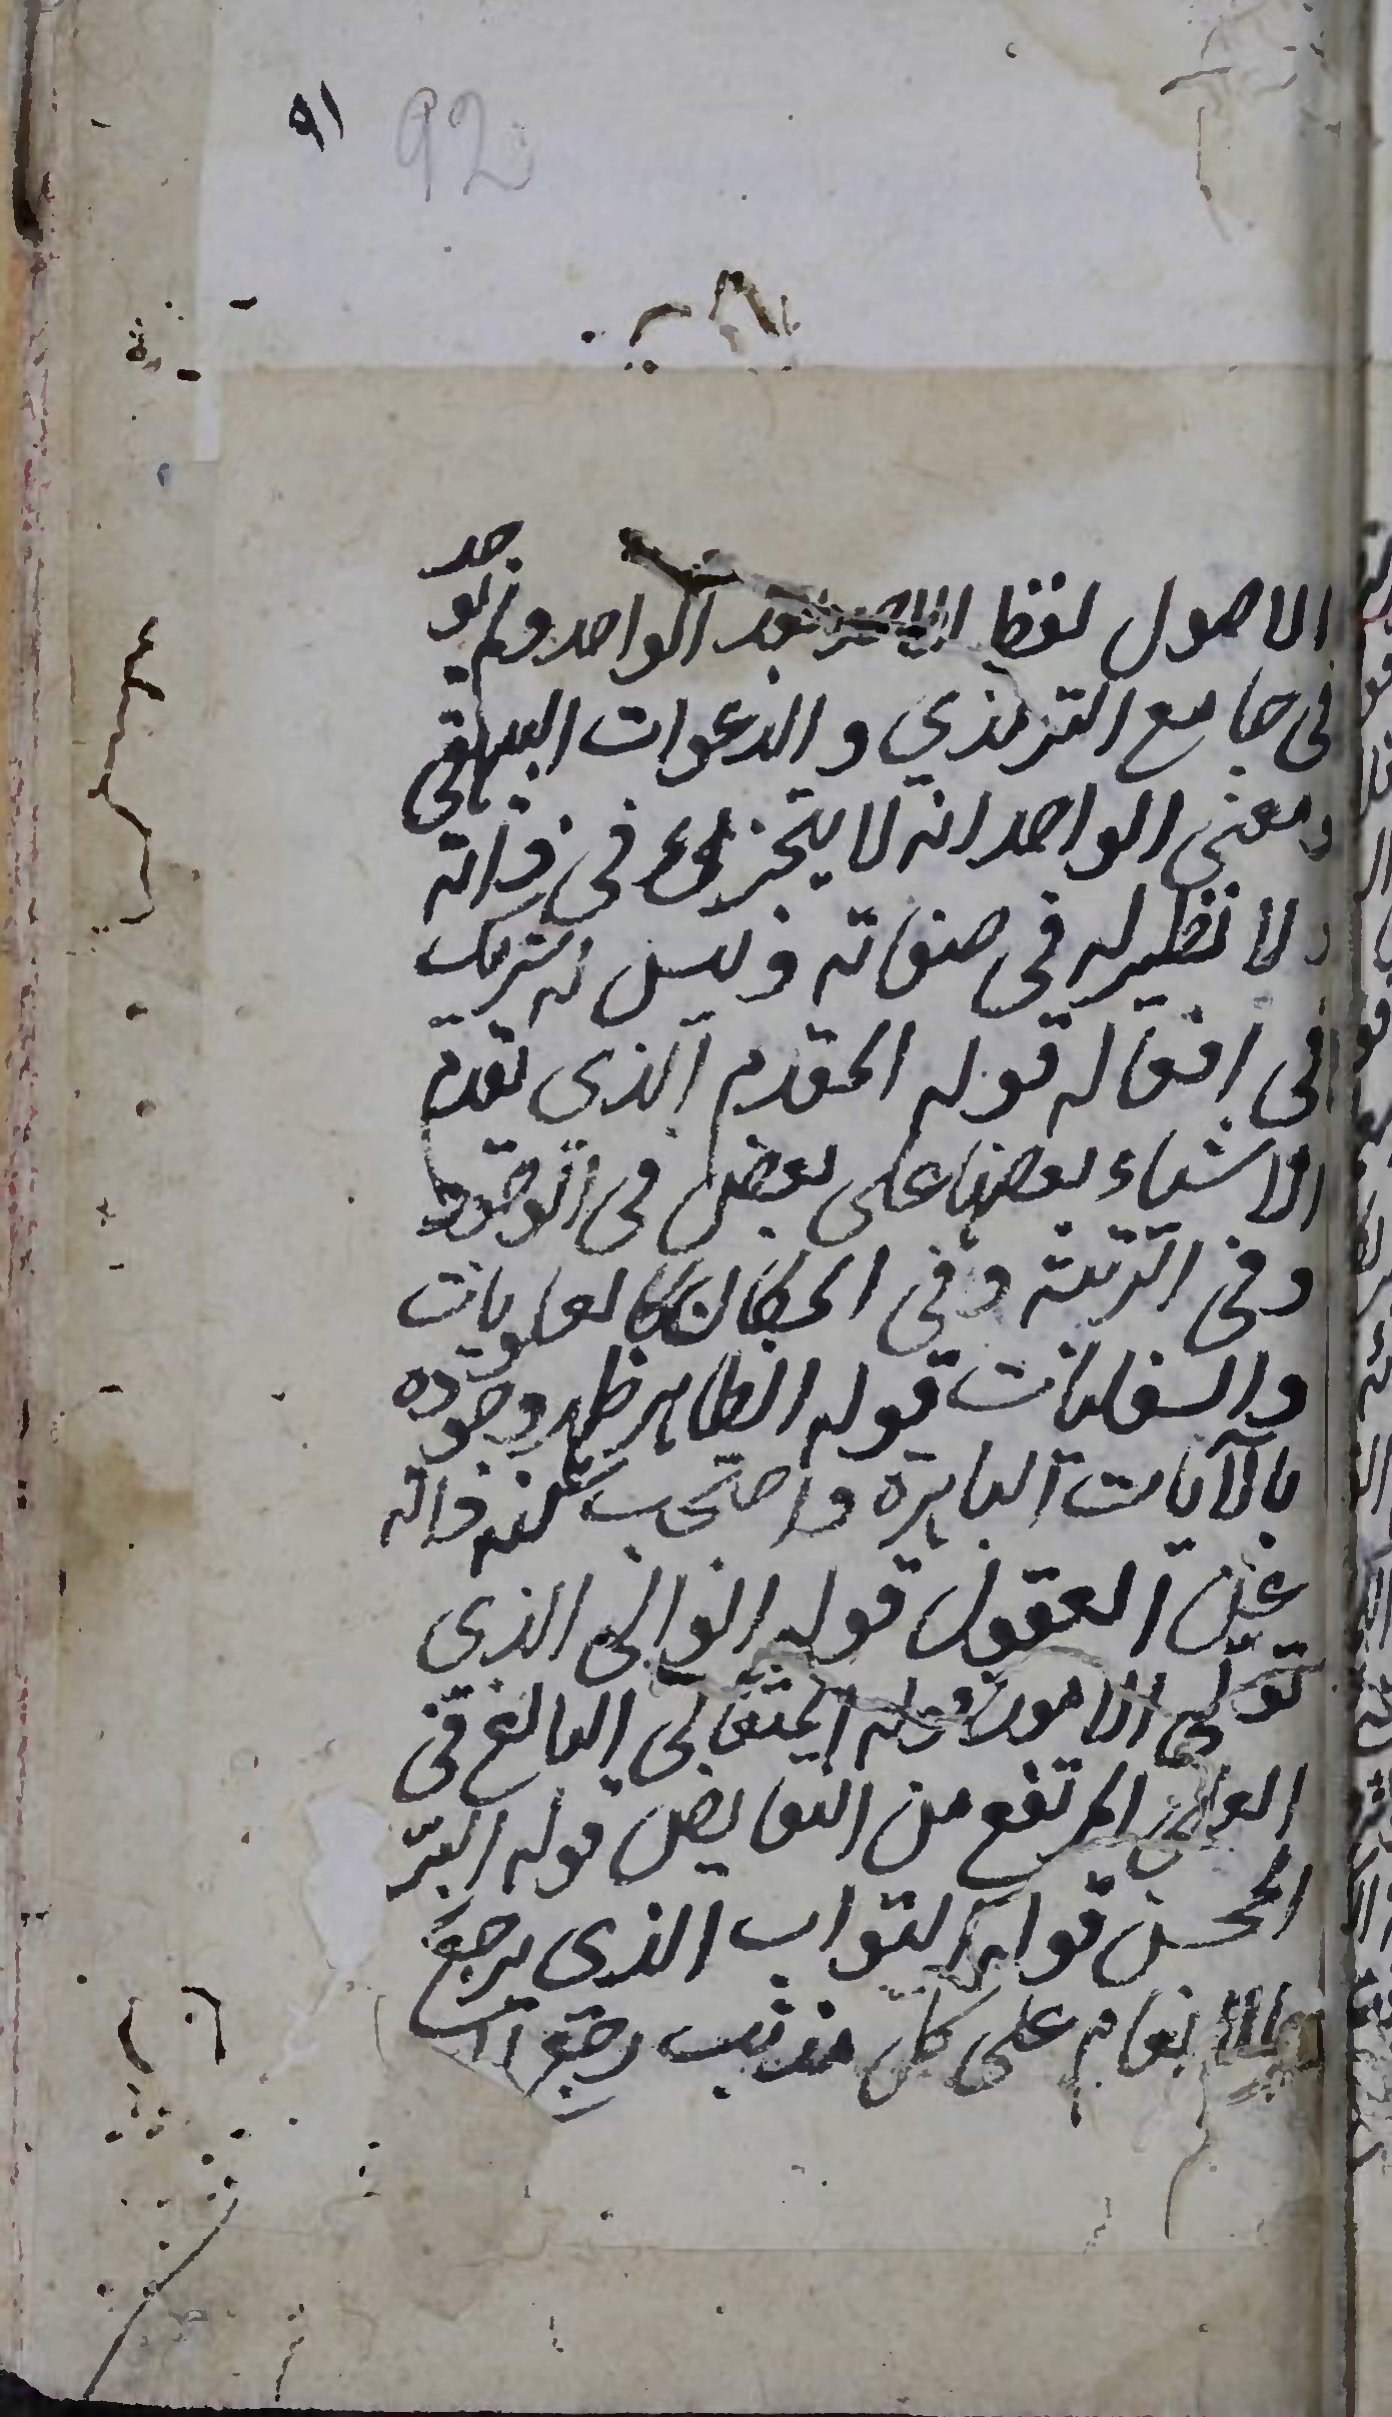 ٩١ 92
الاصول لفظ الاحد بعد الواحد ولم يوجد
فى جامع الترمذي و الدعوات البيهقي
ومعنى الواحد انه لا يتجزئ فى ذاته
ولا نظير له فى صفاته وليس له شريك
فى افعاله قوله المقدم الذى تقدم
الاشياء بعضها على بعض فى الوجود
وفى الرتبة وفى المكان كالعلويات
والسفليات قوله الظاهر ظهر وجوده
بالآيات الباهرة واحتجب كنه ذاته
عن العقول قوله الوالى الذى
تولى الامور قوله المتعالى البالغ فى
العلى المرتفع من النقايص قوله البرّ
المحسن قوله التواب الذى يرجع
بالانعام على كل مذنب رجع